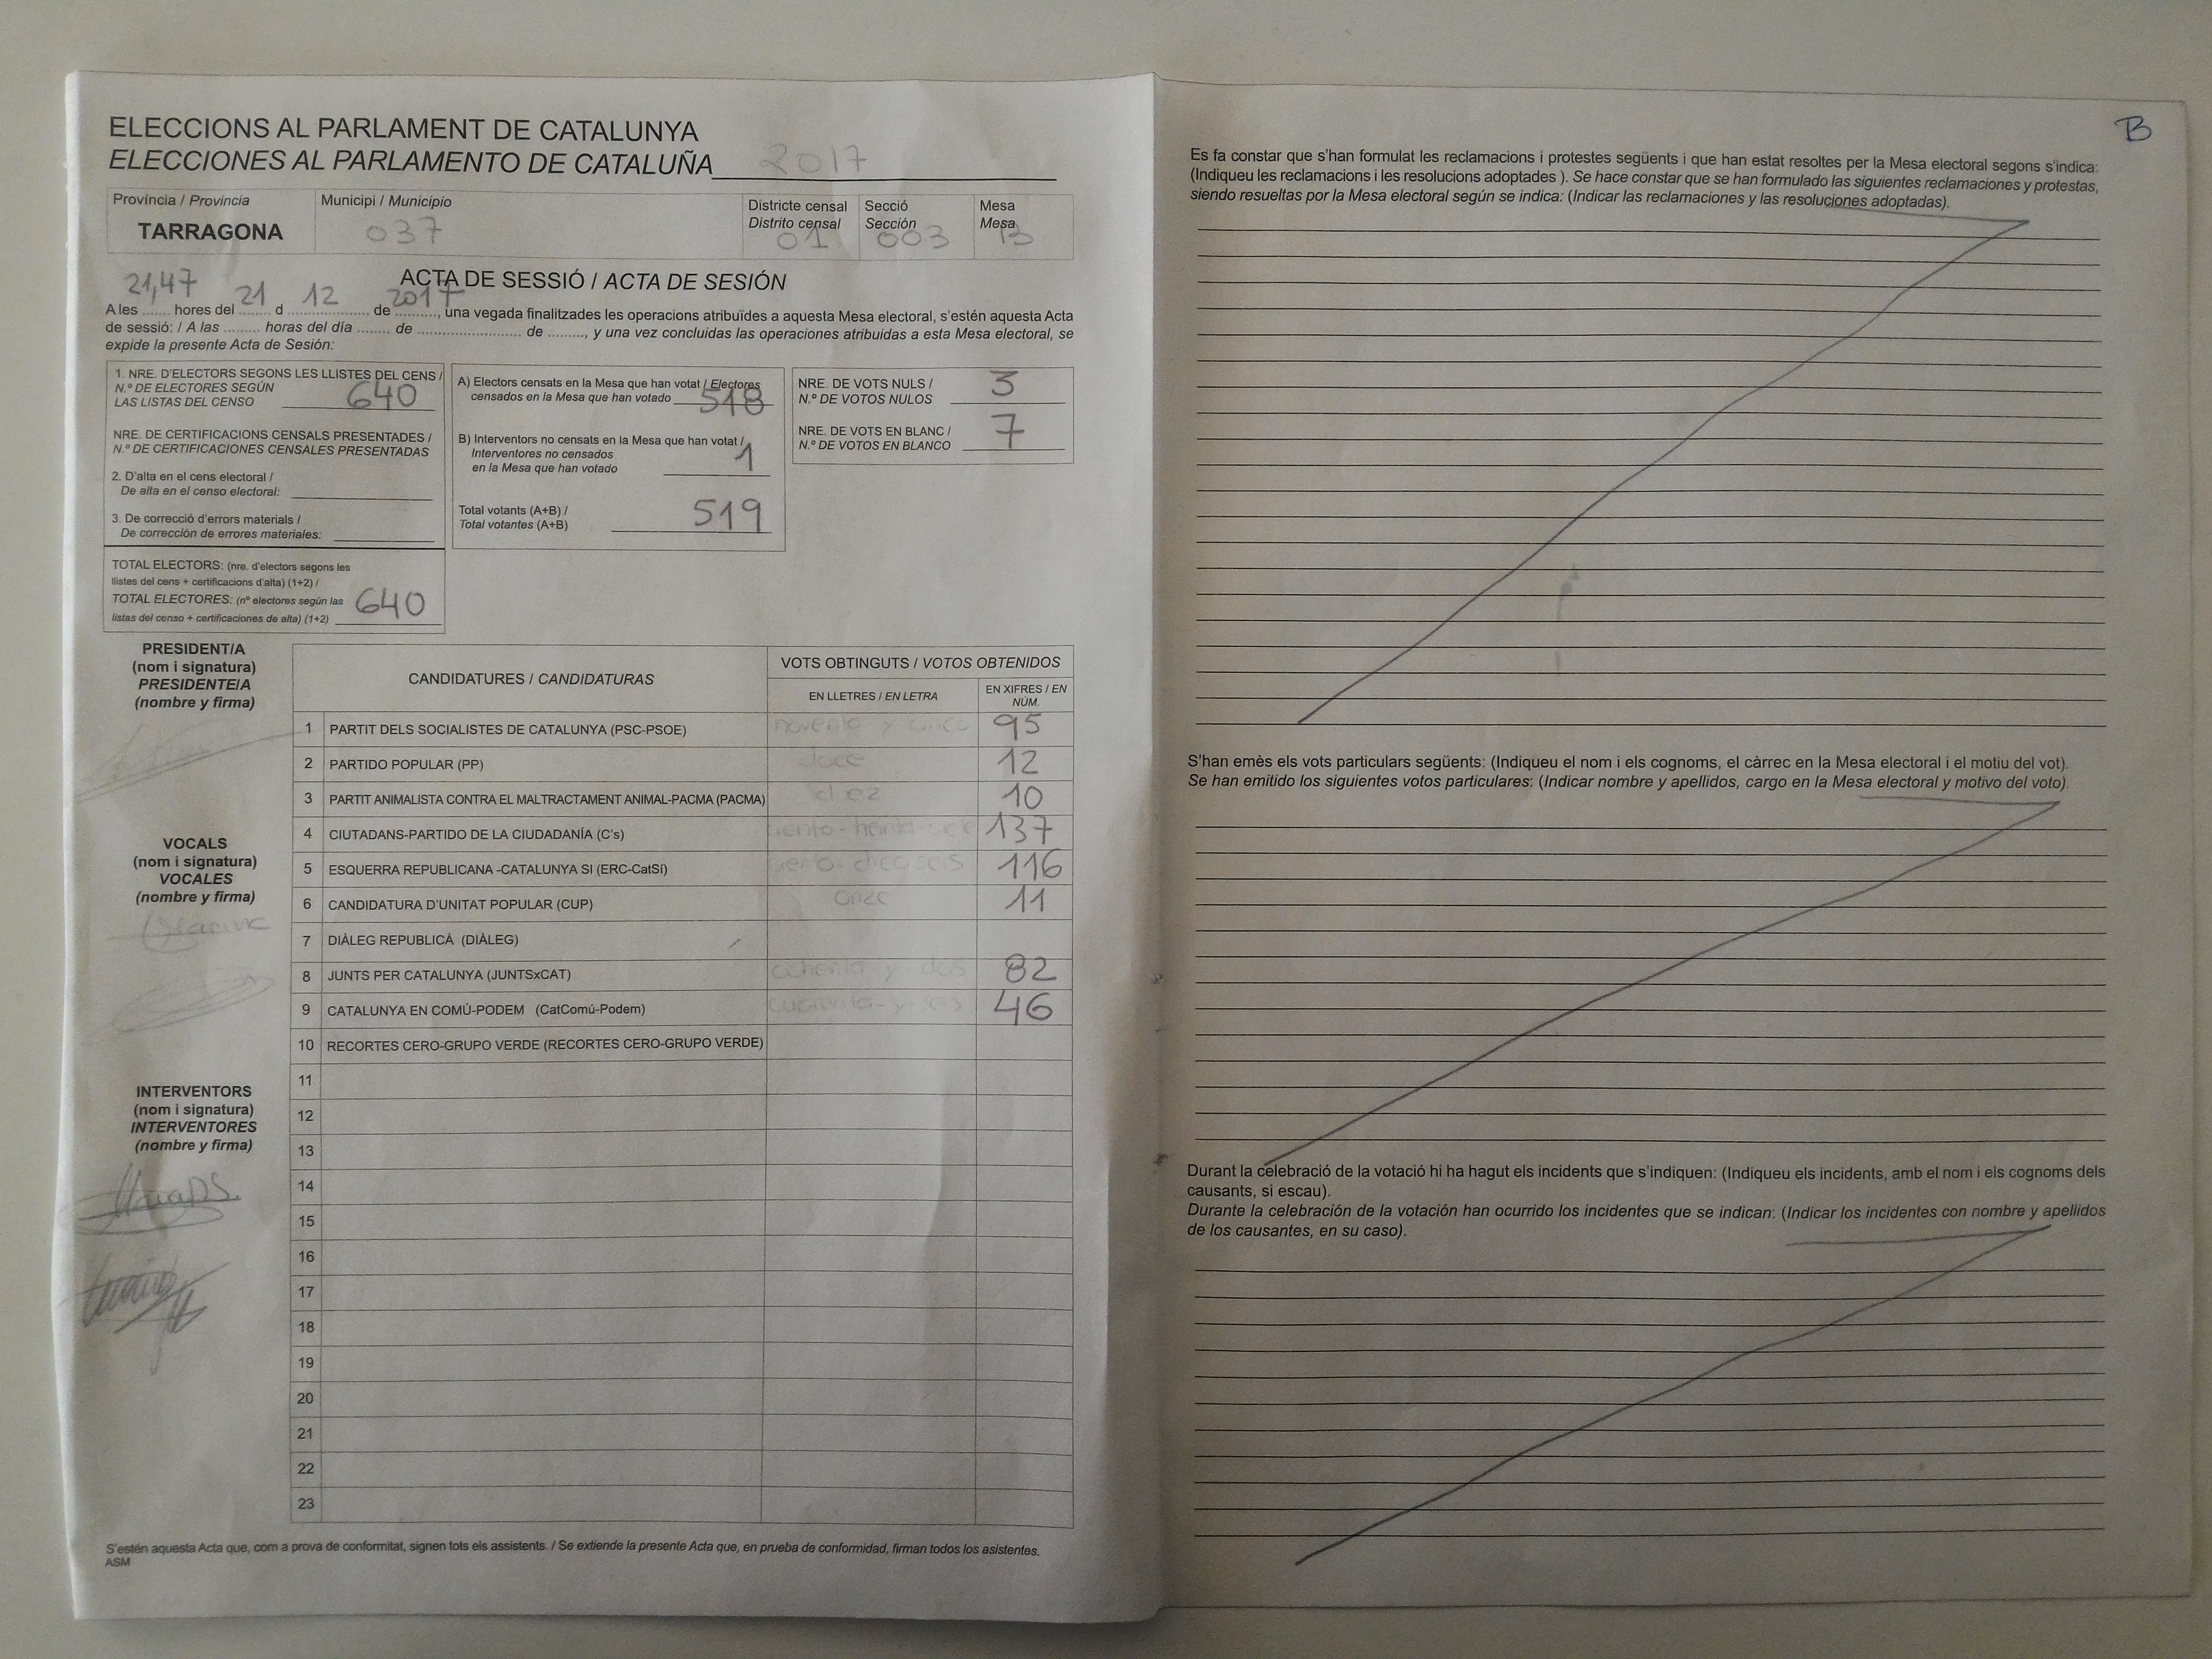 ELECCIONS AL PARLAMENT DE CATALUNYA
ELECCIONES AL PARLAMENTO DE CATALUÑA 2017
Província / Provincia
TARRAGONA
Municipi / Municipio
037
Districte censal
Distrito censal
01
Secció
Sección
003
Mesa
Mesa
B
ACTA DE SESSIÓ / ACTA DE SESIÓN
21,47 21 12 2017
A les ........ hores del ........ d ................ de ........, una vegada finalitzades les operacions atribuïdes a aquesta Mesa electoral, s'estén aquesta Acta
de sessió: / A las ........ horas del día ........ de ................ de ........, y una vez concluidas las operaciones atribuidas a esta Mesa electoral, se
expide la presente Acta de Sesión:
1. NRE. D'ELECTORS SEGONS LES LLISTES DEL CENS /
N.º DE ELECTORES SEGÚN
LAS LISTAS DEL CENSO 640
NRE. DE CERTIFICACIONS CENSALS PRESENTADES /
N.º DE CERTIFICACIONES CENSALES PRESENTADAS
2. D'alta en el cens electoral /
De alta en el censo electoral:
3. De correcció d'errors materials /
De corrección de errores materiales:
TOTAL ELECTORS: (nre. d'electors segons les
llistes del cens + certificacions d'alta) (1+2) /
TOTAL ELECTORES: (nº electores según las
listas del censo + certificaciones de alta) (1+2) 640
A) Electors censats en la Mesa que han votat / Electores
censados en la Mesa que han votado 518
B) Interventors no censats en la Mesa que han votat /
Interventores no censados
en la Mesa que han votado 1
Total votants (A+B) /
Total votantes (A+B) 519
NRE. DE VOTS NULS /
N.º DE VOTOS NULOS 3
NRE. DE VOTS EN BLANC /
N.º DE VOTOS EN BLANCO 7
PRESIDENT/A
(nom i signatura)
PRESIDENTE/A
(nombre y firma)
VOCALS
(nom i signatura)
VOCALES
(nombre y firma)
INTERVENTORS
(nom i signatura)
INTERVENTORES
(nombre y firma)
CANDIDATURES / CANDIDATURAS
VOTS OBTINGUTS / VOTOS OBTENIDOS
EN LLETRES / EN LETRA
EN XIFRES / EN NÚM.
1 PARTIT DELS SOCIALISTES DE CATALUNYA (PSC-PSOE) noventa y cinco 95
2 PARTIDO POPULAR (PP) doce 12
3 PARTIT ANIMALISTA CONTRA EL MALTRACTAMENT ANIMAL-PACMA (PACMA) diez 10
4 CIUTADANS-PARTIDO DE LA CIUDADANÍA (C's) 137
5 ESQUERRA REPUBLICANA -CATALUNYA SÍ (ERC-CatSí) 116
6 CANDIDATURA D'UNITAT POPULAR (CUP) once 11
7 DIÀLEG REPUBLICÀ (DIÀLEG)
8 JUNTS PER CATALUNYA (JUNTSxCAT) ochenta y dos 82
9 CATALUNYA EN COMÚ-PODEM (CatComú-Podem) 46
10 RECORTES CERO-GRUPO VERDE (RECORTES CERO-GRUPO VERDE)
11
12
13
14
15
16
17
18
19
20
21
22
23
S'estén aquesta Acta que, com a prova de conformitat, signen tots els assistents. / Se extiende la presente Acta que, en prueba de conformidad, firman todos los asistentes.
ASM
B
Es fa constar que s'han formulat les reclamacions i protestes següents i que han estat resoltes per la Mesa electoral segons s'indica:
(Indiqueu les reclamacions i les resolucions adoptades ). Se hace constar que se han formulado las siguientes reclamaciones y protestas,
siendo resueltas por la Mesa electoral según se indica: (Indicar las reclamaciones y las resoluciones adoptadas).
S'han emès els vots particulars següents: (Indiqueu el nom i els cognoms, el càrrec en la Mesa electoral i el motiu del vot).
Se han emitido los siguientes votos particulares: (Indicar nombre y apellidos, cargo en la Mesa electoral y motivo del voto).
Durant la celebració de la votació hi ha hagut els incidents que s'indiquen: (Indiqueu els incidents, amb el nom i els cognoms dels
causants, si escau).
Durante la celebración de la votación han ocurrido los incidentes que se indican: (Indicar los incidentes con nombre y apellidos
de los causantes, en su caso).